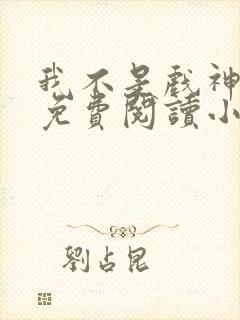 我不是戲神
免費閱讀小
劉占昆